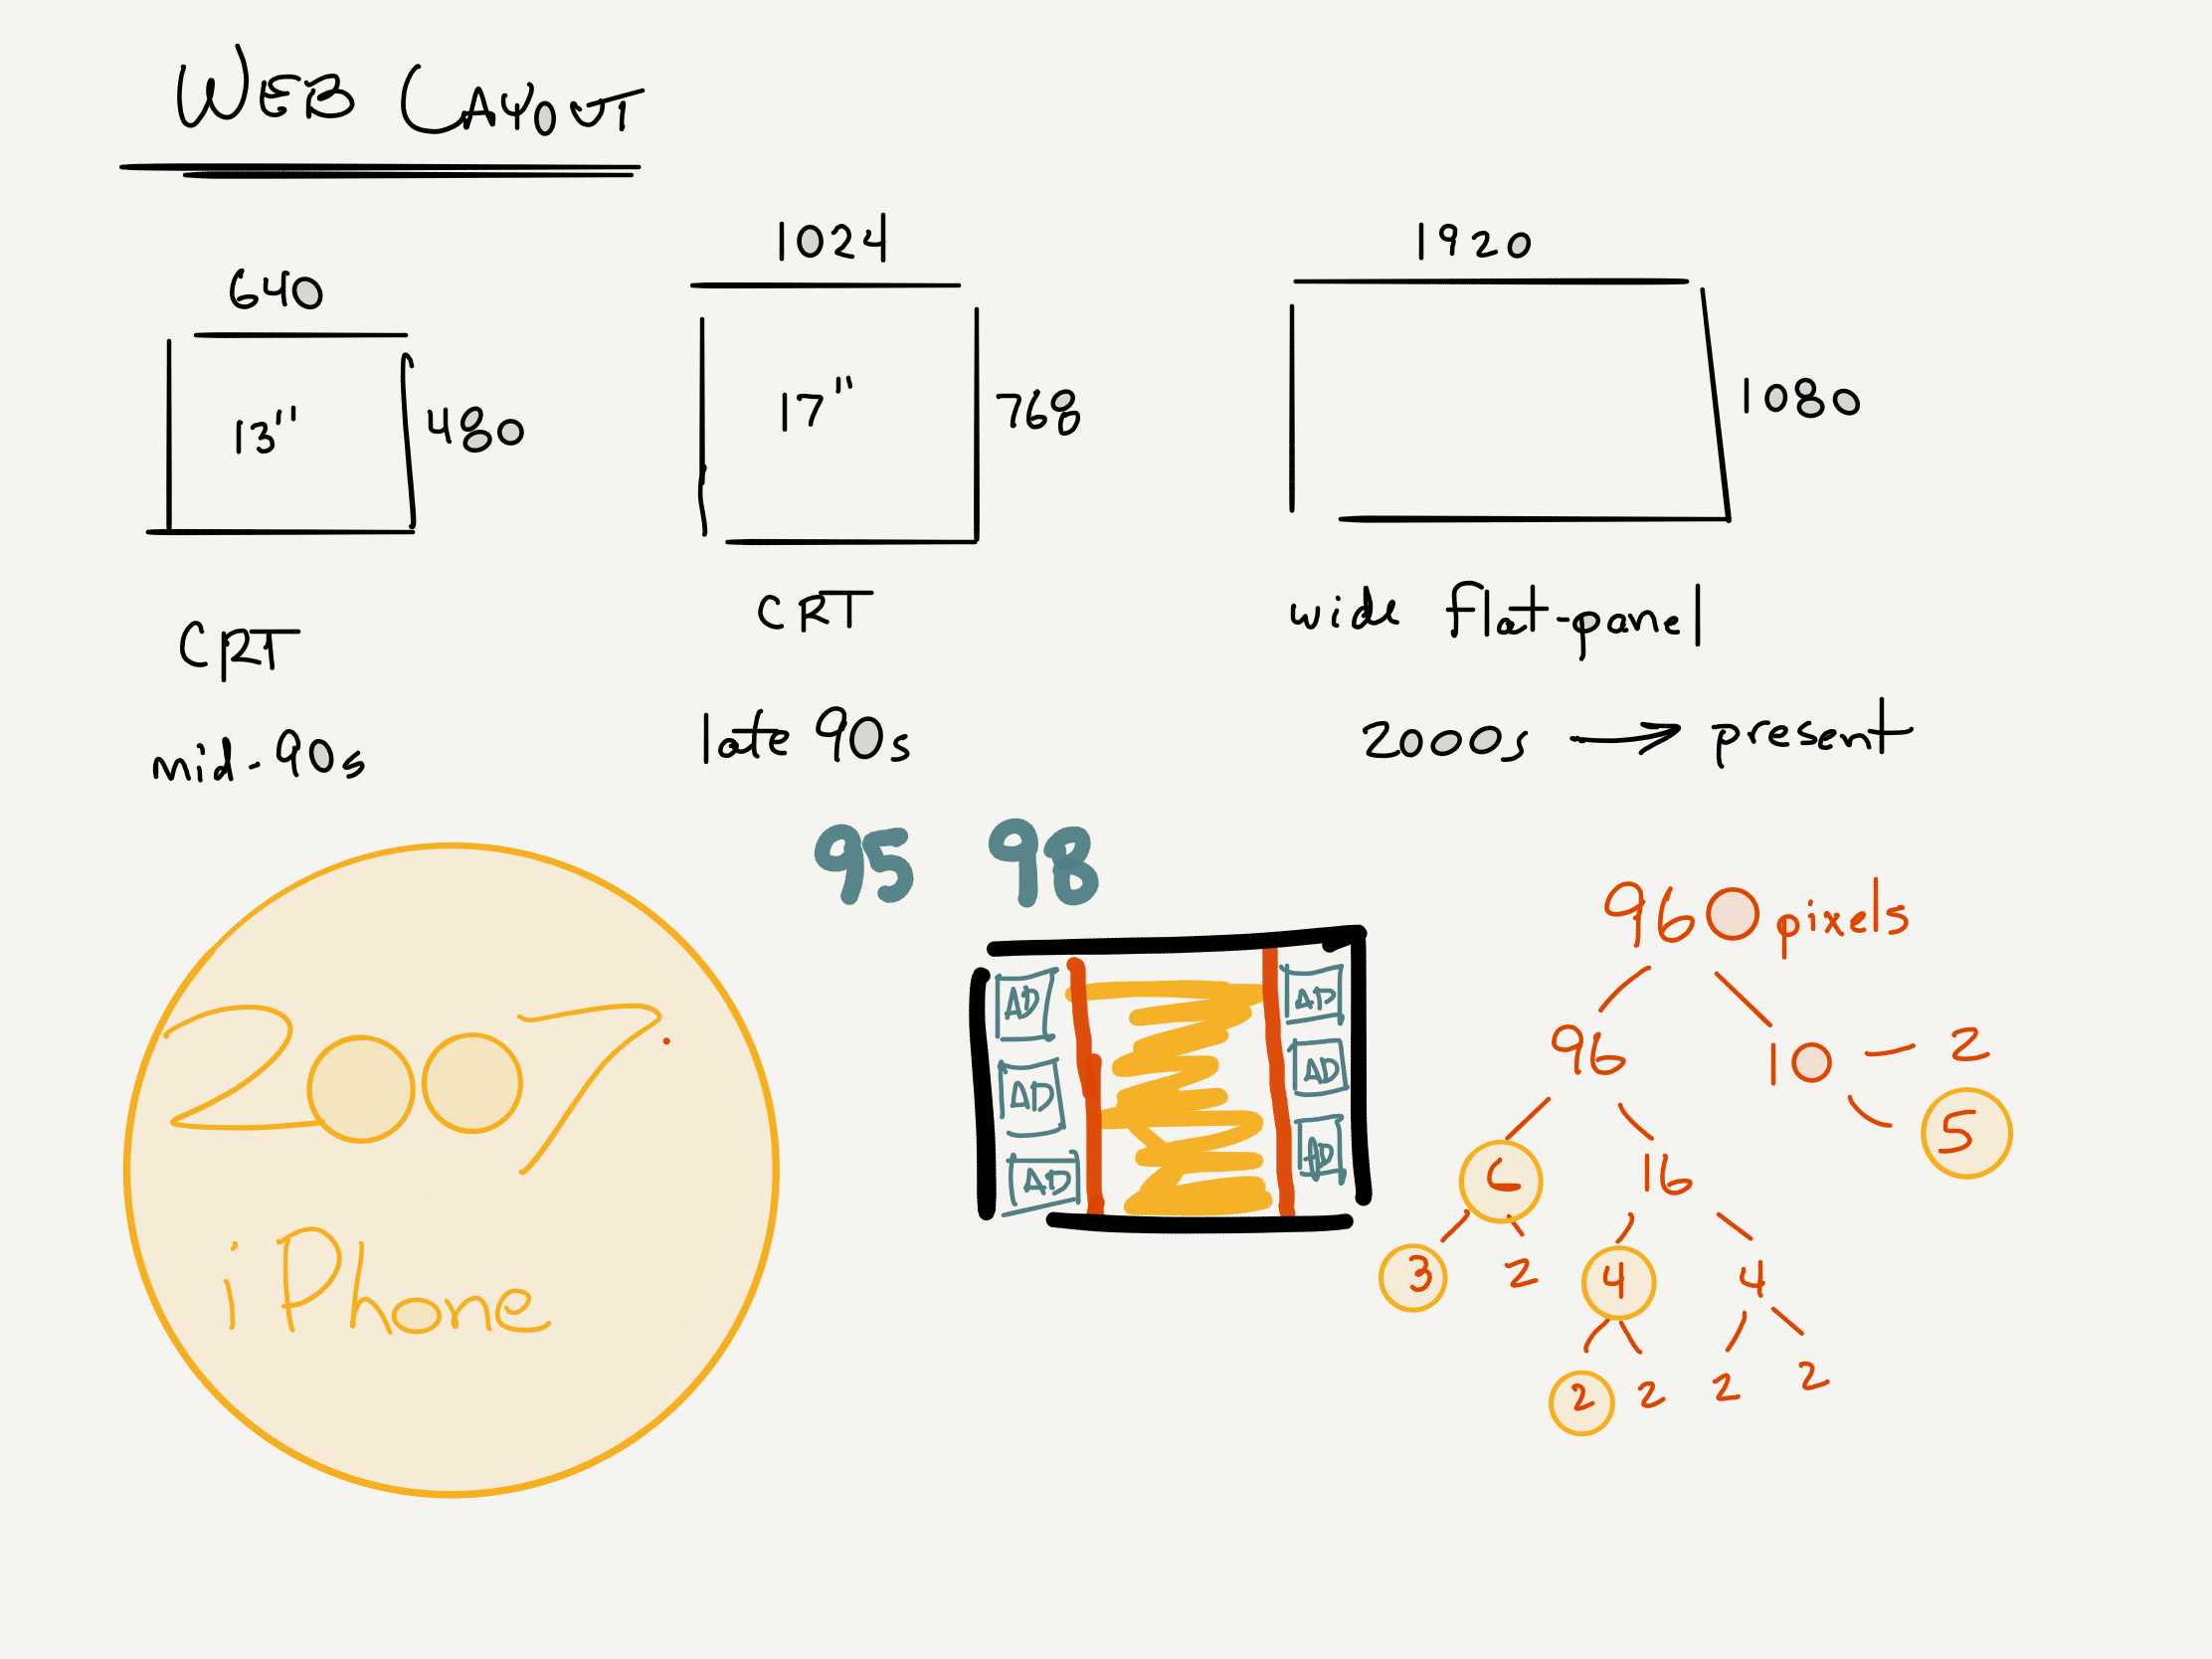 WEB LAYOUT
640
13"
480
CRT
mid-90s
1024
17"
768
CRT
late 90s
1920
1080
wide flat-panel
2000s → present
95 98
2007
iPhone
AD
AD
AD
AD
AD
AD
960 pixels
96 10 2
5
6 16
3 2 4 4
2 2 2 2